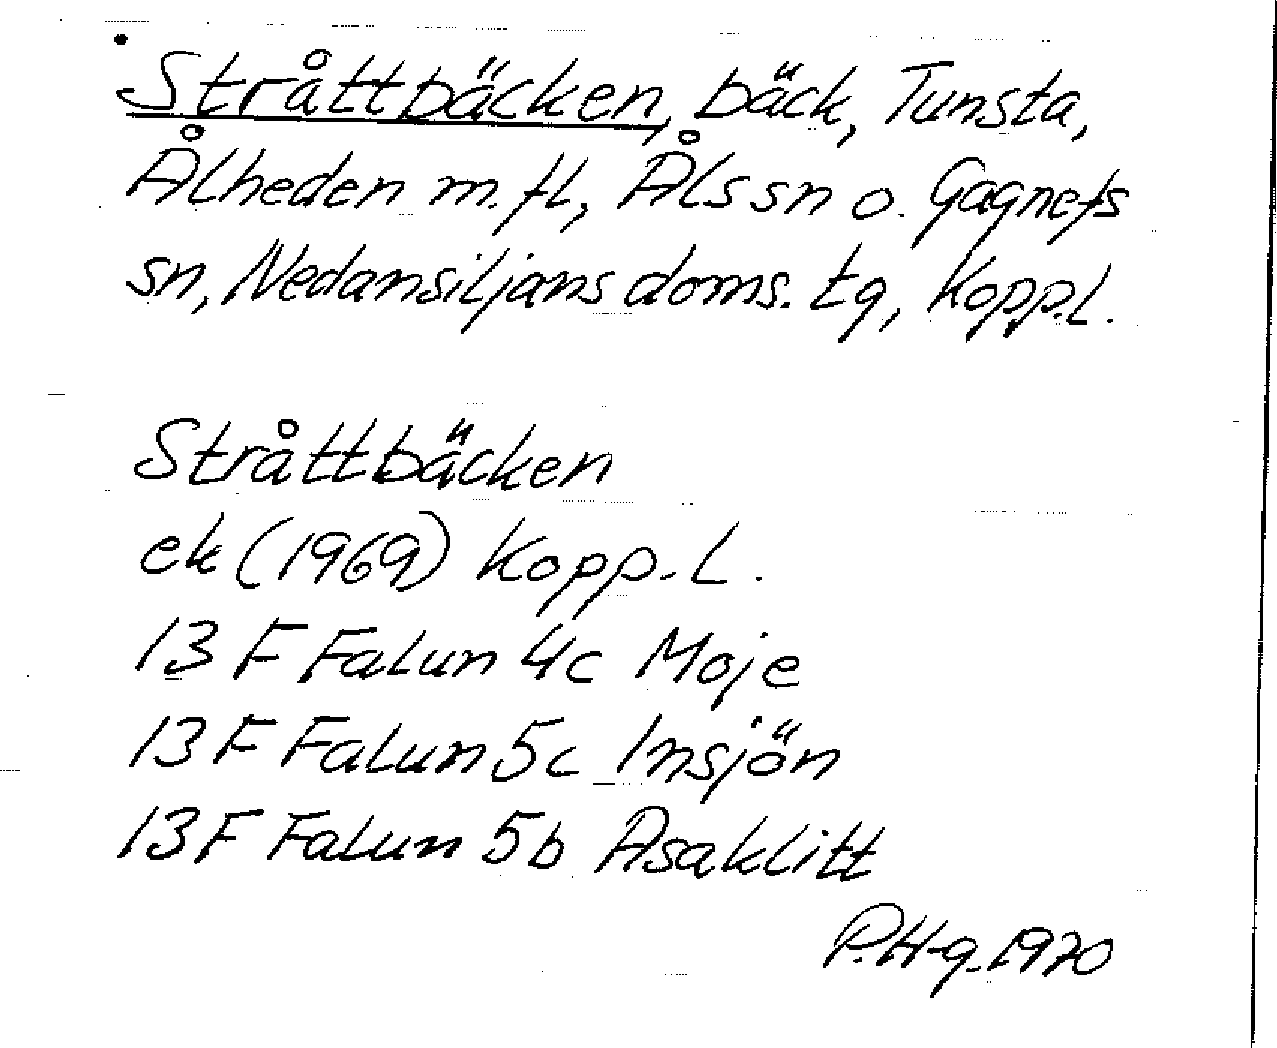 Stråttbäcken, bäck, Tunsta,
Ålheden m.fl, Åls sn o. Gagnefs
sn, Nedansiljans doms. tg, Kopp.l.
Stråttbäcken
ek (1969) Kopp.L.
13 F Falun 4c Moje
13 F Falun 5c Insjön
13 F Falun 5b Asaklitt
P.H-g. 1970